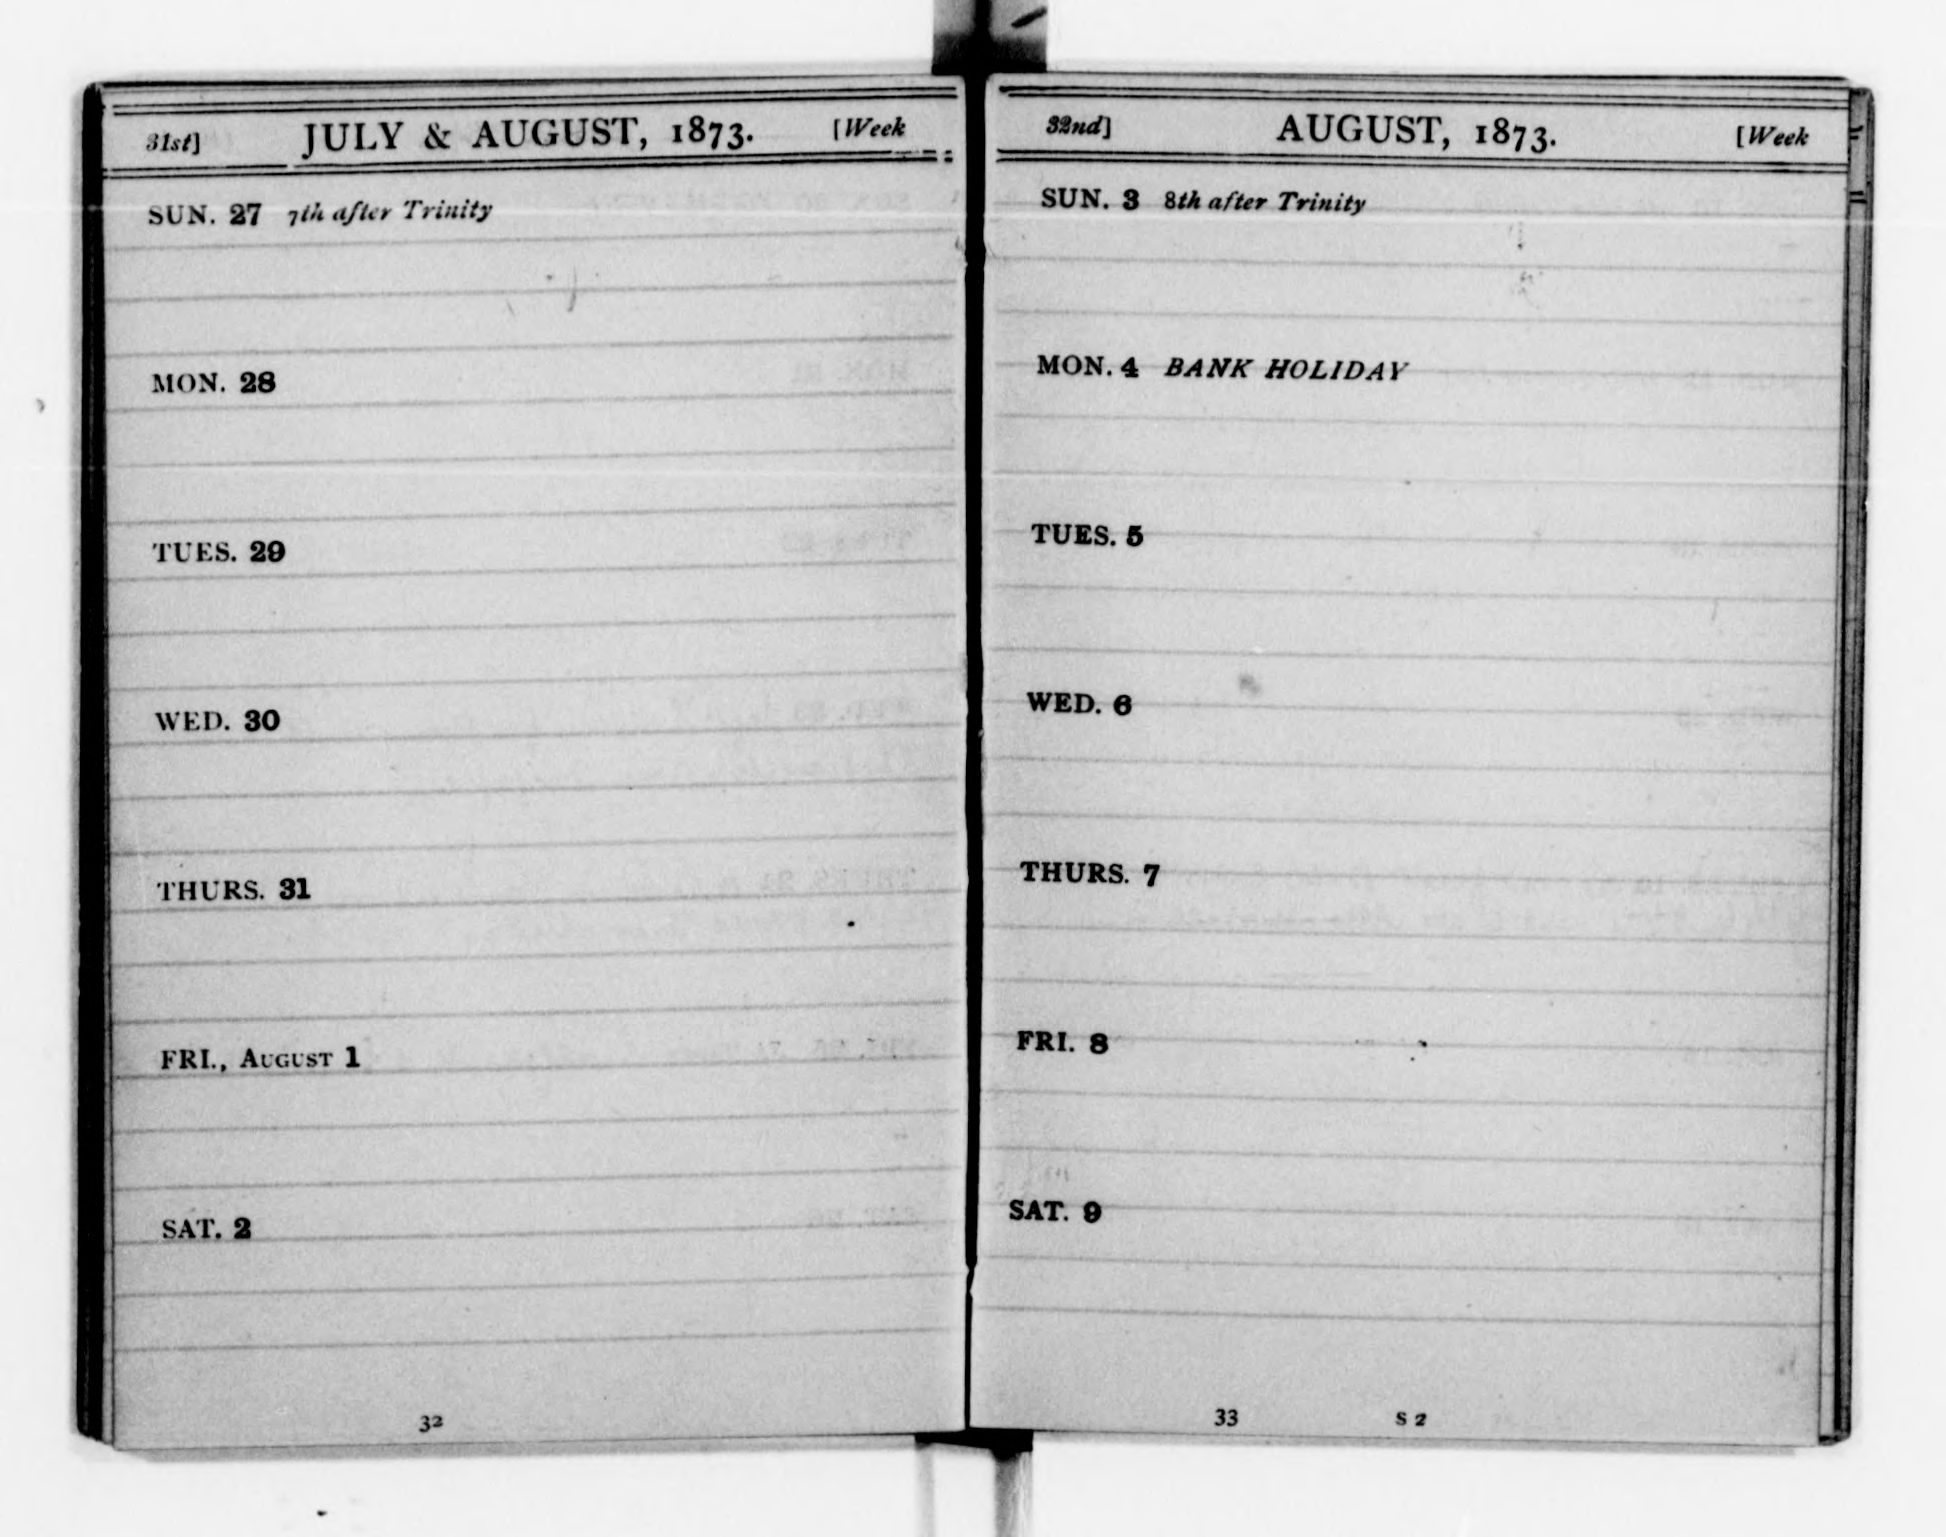 31st] JULY & AUGUST, 1873. [Week
SUN. 27 7th after Trinity
MON. 28
TUES. 29
WED. 30
THURS. 31
FRI., AUGUST 1
SAT. 2
32
32nd] AUGUST, 1873. [Week
SUN. 3 8th after Trinity
MON. 4 BANK HOLIDAY
TUES. 5
WED. 6
THURS. 7
FRI. 8
SAT. 9
33 S 2